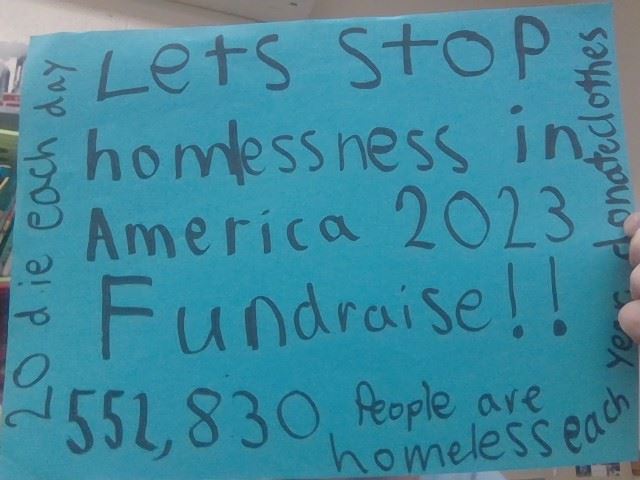 Lets stop
homlessness in
America 2023
Fundraise!!
552,830 People are
homeless each year donate clothes
20 die each day